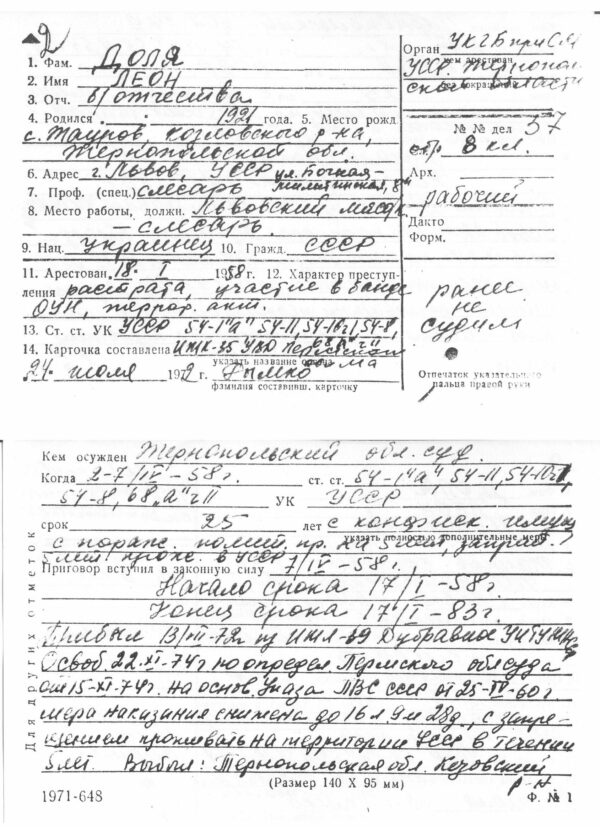 2
1. Фам. ДОЛЯ
2. Имя ЛЕОН
3. Отч. б/отчества
4. Родился " " 1921 года. 5. Место рожд.
с. Тауров Козловского р-на,
Тернопольской обл.
6. Адрес г. Львов, УССР ул. Бочная-
7. Проф. (спец.) слесарь
8. Место работы, должн. Львовский
– слесарь.
9. Нац. украинец 10. Гражд. СССР
11. Арестован 18. I 1958 г. 12. Характер преступ-
ления растрата, участие в банде
ОУН, террор. акт.
13. Ст. ст. УК УССР 54-1"а" 54-11, 54-10ч1, 54-8,
68 "А" ч II
14. Карточка составлена ИТК-35 УВО Пермской
указать название органа
24. июля 1972 г.
фамилия составивш. карточку
Орган УКГБ при СМ
кем арестован
УССР Тернополь-
без сокращений
ской области
№ № дел 57
стр 8 кл.
Арх.
рабочий
Дакто
Форм.
ранее
не
судим
Отпечаток указательного
пальца правой руки
Кем осужден Тернопольский обл. суд.
Когда 2-7/IV-58г. ст. ст. 54-1"а", 54-11, 54-10ч1,
54-8, 68 "А" ч II УК УССР
срок 25 лет с конфиск. имущ.
указать полностью дополнительные меры
с пораж. полит. пр. на 5 лет, запрещ.
5 лет прож. в УССР
Приговор вступил в законную силу 7/IV-58г.
Начало срока 17/I-58г.
Конец срока 17/I-83г.
Прибыл 13/VII-72г из ИТК-19 Дубравное УИТУ
Освоб. 22-XI-74г по определ. Пермского облсуда
от 15-XI-74г. на основ. Указа ПВС СССР от 25-IV-60г.
мера наказания снижена до 16 л. 9 м 28 д, с запре-
щением проживать на территории УССР в течении
5 лет. Выбыл: Тернопольская обл. Козовский
р-н
Для других отметок
(Размер 140 X 95 мм)
1971-648
Ф. № 1